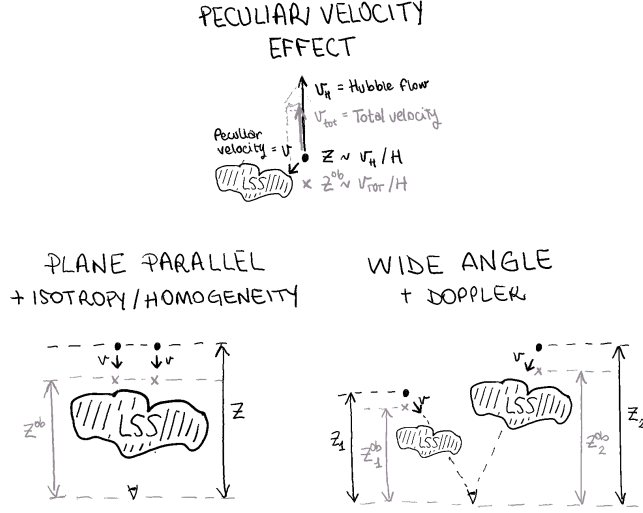 PECULIAR VELOCITY
EFFECT
v_H = Hubble flow
v_tot = Total velocity
Peculiar
velocity = v
LSS
Z ~ v_H/H
Z^ob ~ v_TOT/H
PLANE PARALLEL
+ ISOTROPY/HOMOGENEITY
v v
Z^ob
LSS
Z
WIDE ANGLE
+ DOPPLER
v
v
Z_1
Z_1^ob
LSS
LSS
Z_2^ob
Z_2